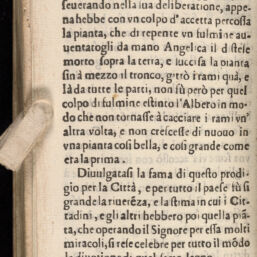 seuerando nella sua deliberatione, appe-
na hebbe con vn colpo d'accetta percossa
la pianta, che di repente vn fulmine au-
uentatogli da mano Angelica il distese
morto sopra la terra, e luccisa la pianta
sin à mezzo il tronco, gittò i rami quà, e
là da tutte le parti, non fù però per quel
colpo di fulmine estinto l'Albero in mo-
do che non tornasse à cacciare i rami vn'
altra volta, e non crescesse di nuouo in
vna pianta così bella, e così grande come
era la prima.
Diuulgatasi la fama di questo prodi-
gio per la Città, e per tutto il paese fù sì
grande la riuerẽza, e la stima in cui i Cit-
tadini, e gli altri hebbero poi quella piã-
ta, che operando il Signore per essa molti
miracoli, si rese celebre per tutto il mõdo